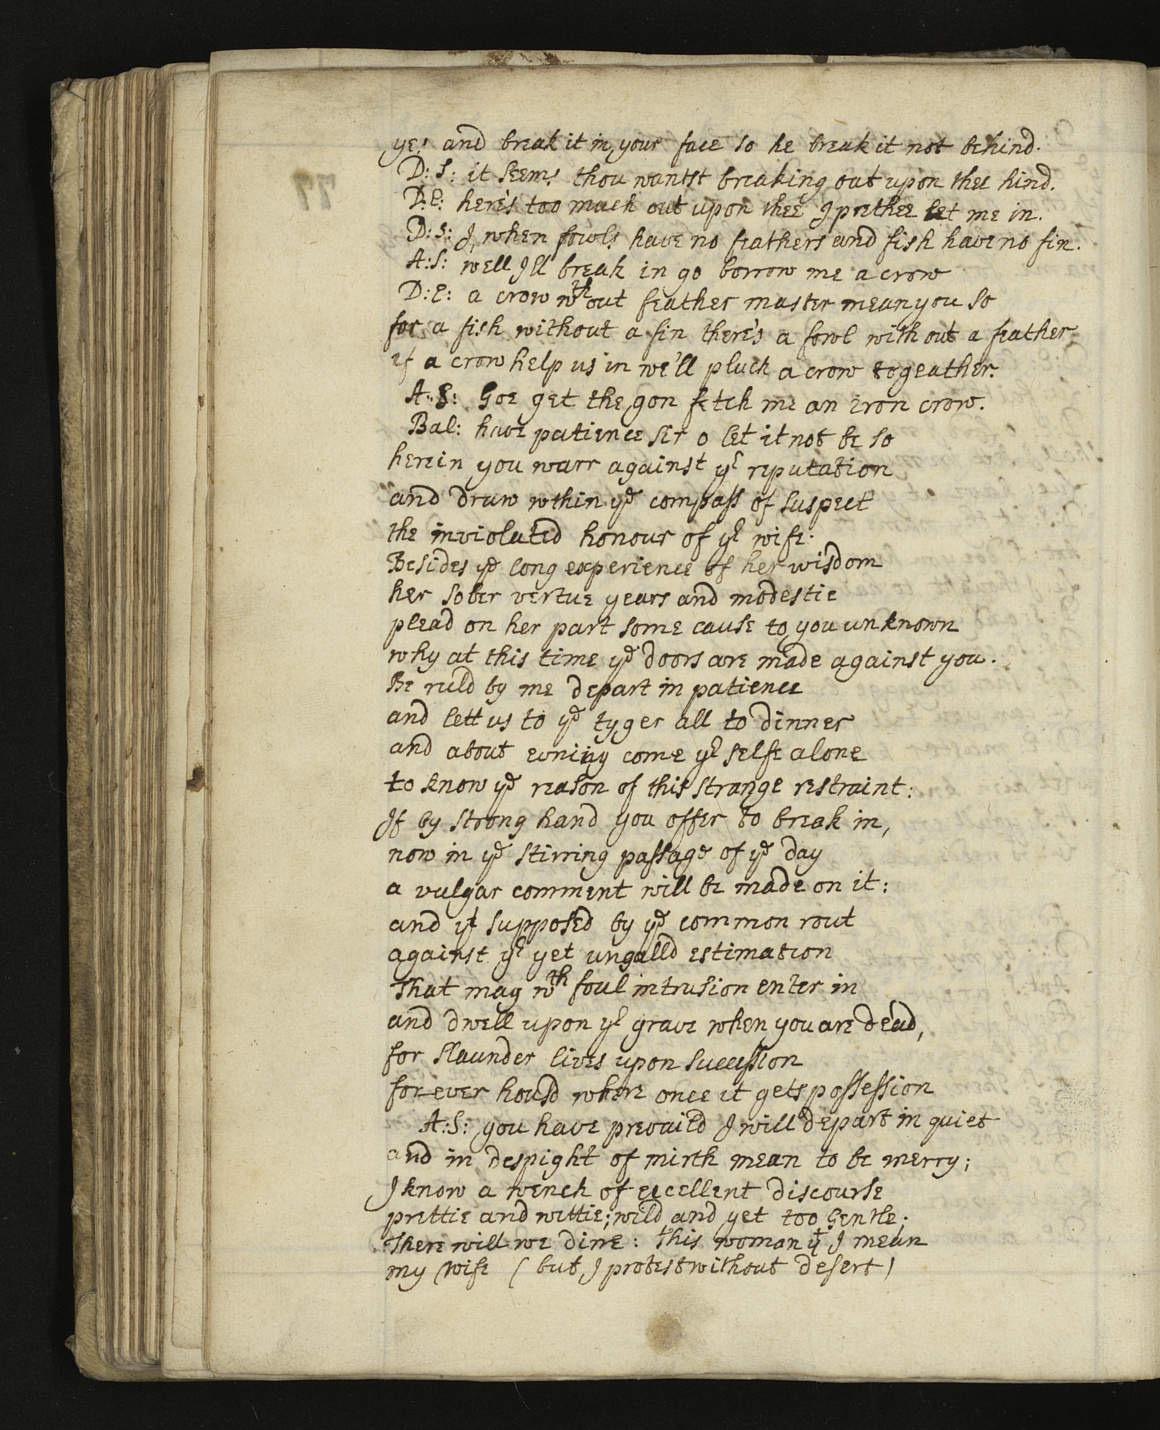 yes and break it in your face so he break it not behind.
D: S: it seems thou wantst breaking out upon thee hind.
D: E: here's too much out upon thee I prethee let me in.
D: S: I, when fowls have no feathers and fish have no fin.
A: S: well I'll break in go borrow me a crow
D: E: a crow wth out feather master mean you so
for a fish without a fin there's a fowl with out a feather,
if a crow help us in we'll pluck a crow togeather.
A: S: Goe get the gon fetch me an Iron crow.
Bal: have patience sir o let it not be so
herein you warr against yr reputation
and draw within ye compass of suspect
the inviolated honour of yr wife.
Besides ye long experience of her wisdom
her sober vertue years and modestie
plead on her part some cause to you unknown
why at this time ye doors are made against you.
Be ruld by me depart in patience
and lett us to ye tyger all to dinner
and about evning come yr selfe alone
to know ye reason of this strange restraint:
If by strong hand you offer to break in,
now in ye stirring passage of ye day
a vulgar comment will be made on it:
and yt supposed by ye common rout
against yr yet ungalld estimation
That may wth foul intrusion enter in
and dwell upon yr grave when you are dead,
for slaunder lives upon succession
for ever housd where once it gets possession
A: S: you have prevaild I will depart in quiet
and in despight of mirth mean to be merry;
I know a wench of excellent discourse
prettie and wittie; wild and yet too Gentle;
There will we dine: this woman yt I mean
my wife (but I protest without desert)